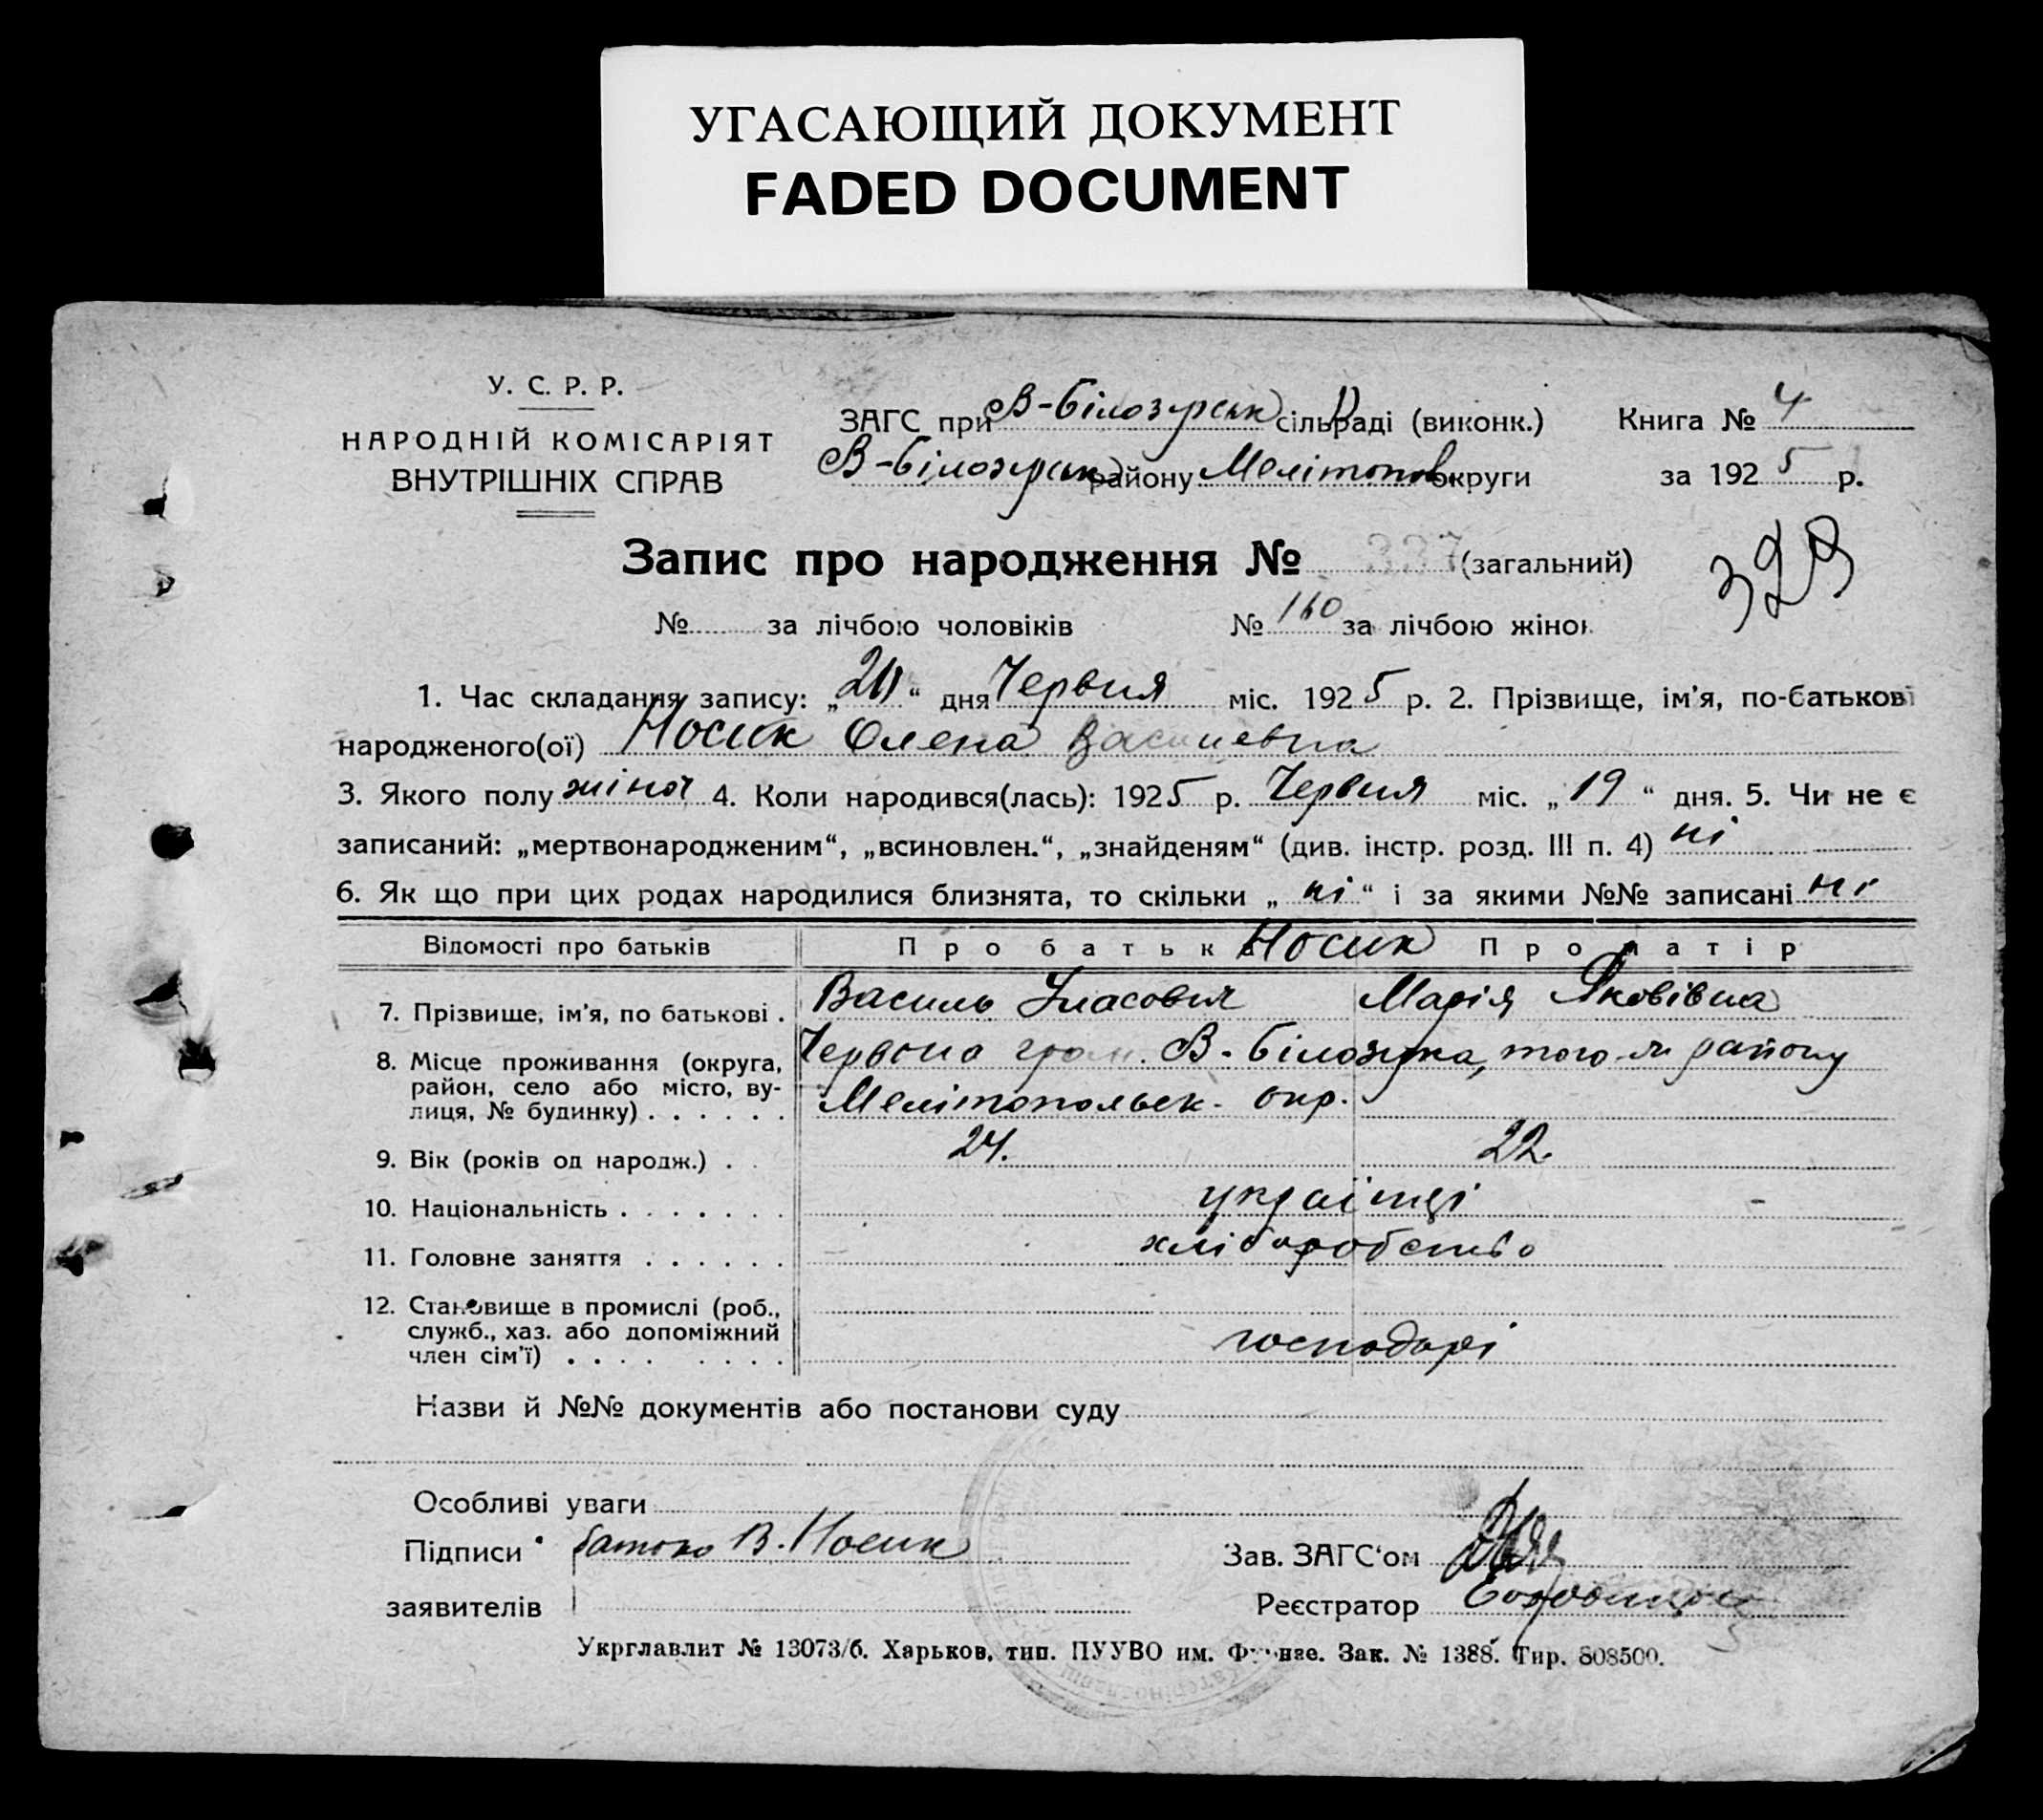 УГАСАЮЩИЙ ДОКУМЕНТ
FADED DOCUMENT
У. С. Р. Р.
НАРОДНІЙ КОМІСАРІЯТ
ВНУТРІШНІХ СПРАВ
ЗАГС при В-Білозерськ сільраді (виконк.) Книга № 4
В-Білозерськ району Мелітопов. округи за 1925 р.
Запис про народження № 337 (загальний) 329
№ за лічбою чоловіків № 160 за лічбою жінок
1. Час складання запису: „20“ дня Червня міс. 1925 р. 2. Прізвище, ім'я, по-батькові
народженого(ої) Носик Олена Василевна
3. Якого полу жіноч 4. Коли народився(лась): 1925 р. Червня міс. „19“ дня. 5. Чи не є
записаний: „мертвонародженим“, „всиновлен.“, „знайденям“ (див. інстр. розд. III п. 4) ні
6. Як що при цих родах народилися близнята, то скільки „ні“ і за якими №№ записані ні
Відомості про батьків Про батька Носик Про матір
7. Прізвище, ім'я, по батькові . Василь Власович Марія Яковівна
8. Місце проживання (округа, Червона гром. В-Білозерка, того-ж району
район, село або місто, ву-
лиця, № будинку) . . . . . . Мелітопольськ. окр.
9. Вік (років од народж.) . . 24. 22.
10. Національність . . . . . . . українці
11. Головне заняття . . . . . . хліборобство
12. Становище в промислі (роб.,
служб., хаз. або допоміжний
член сім'ї) . . . . . . . . . господарі
Назви й №№ документів або постанови суду
Особливі уваги
Підписи батько В. Носик Зав. ЗАГС'ом
заявителів Реєстратор
Укрглавлит № 13073/б. Харьков, тип. ПУУВО им. Фрунзе. Зак. № 1388. Тир. 808500.